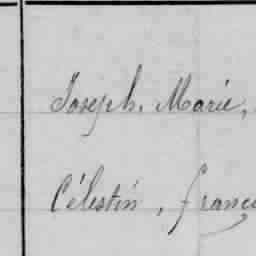 Joseph, Marie,
Célestin, franc